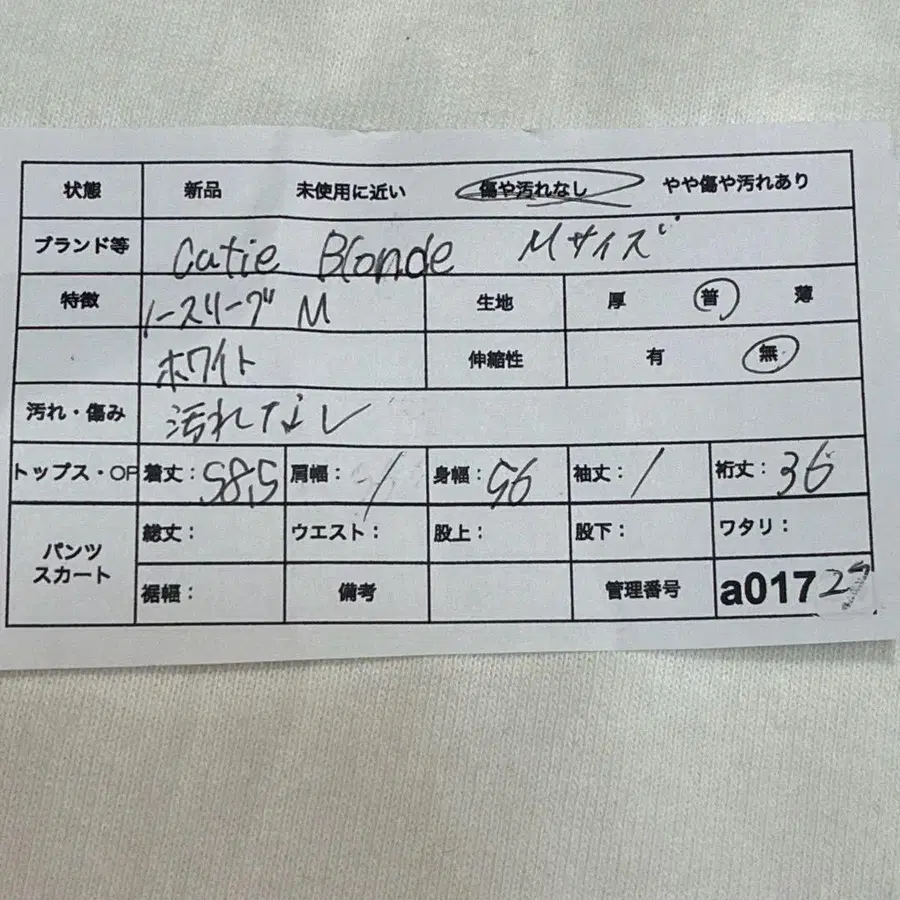 状態 新品 未使用に近い 傷や汚れなし やや傷や汚れあり
ブランド等 Cutie Blonde Mサイズ
特徴 ノースリーブ M 生地 厚 普 薄
ホワイト 伸縮性 有 無
汚れ・傷み 汚れなし
トップス・OP 着丈: 58,5 肩幅: / 身幅: 56 袖丈: / 裄丈: 36
パンツ
スカート
総丈: ウエスト: 股上: 股下: ワタリ:
裾幅: 備考 管理番号 a017